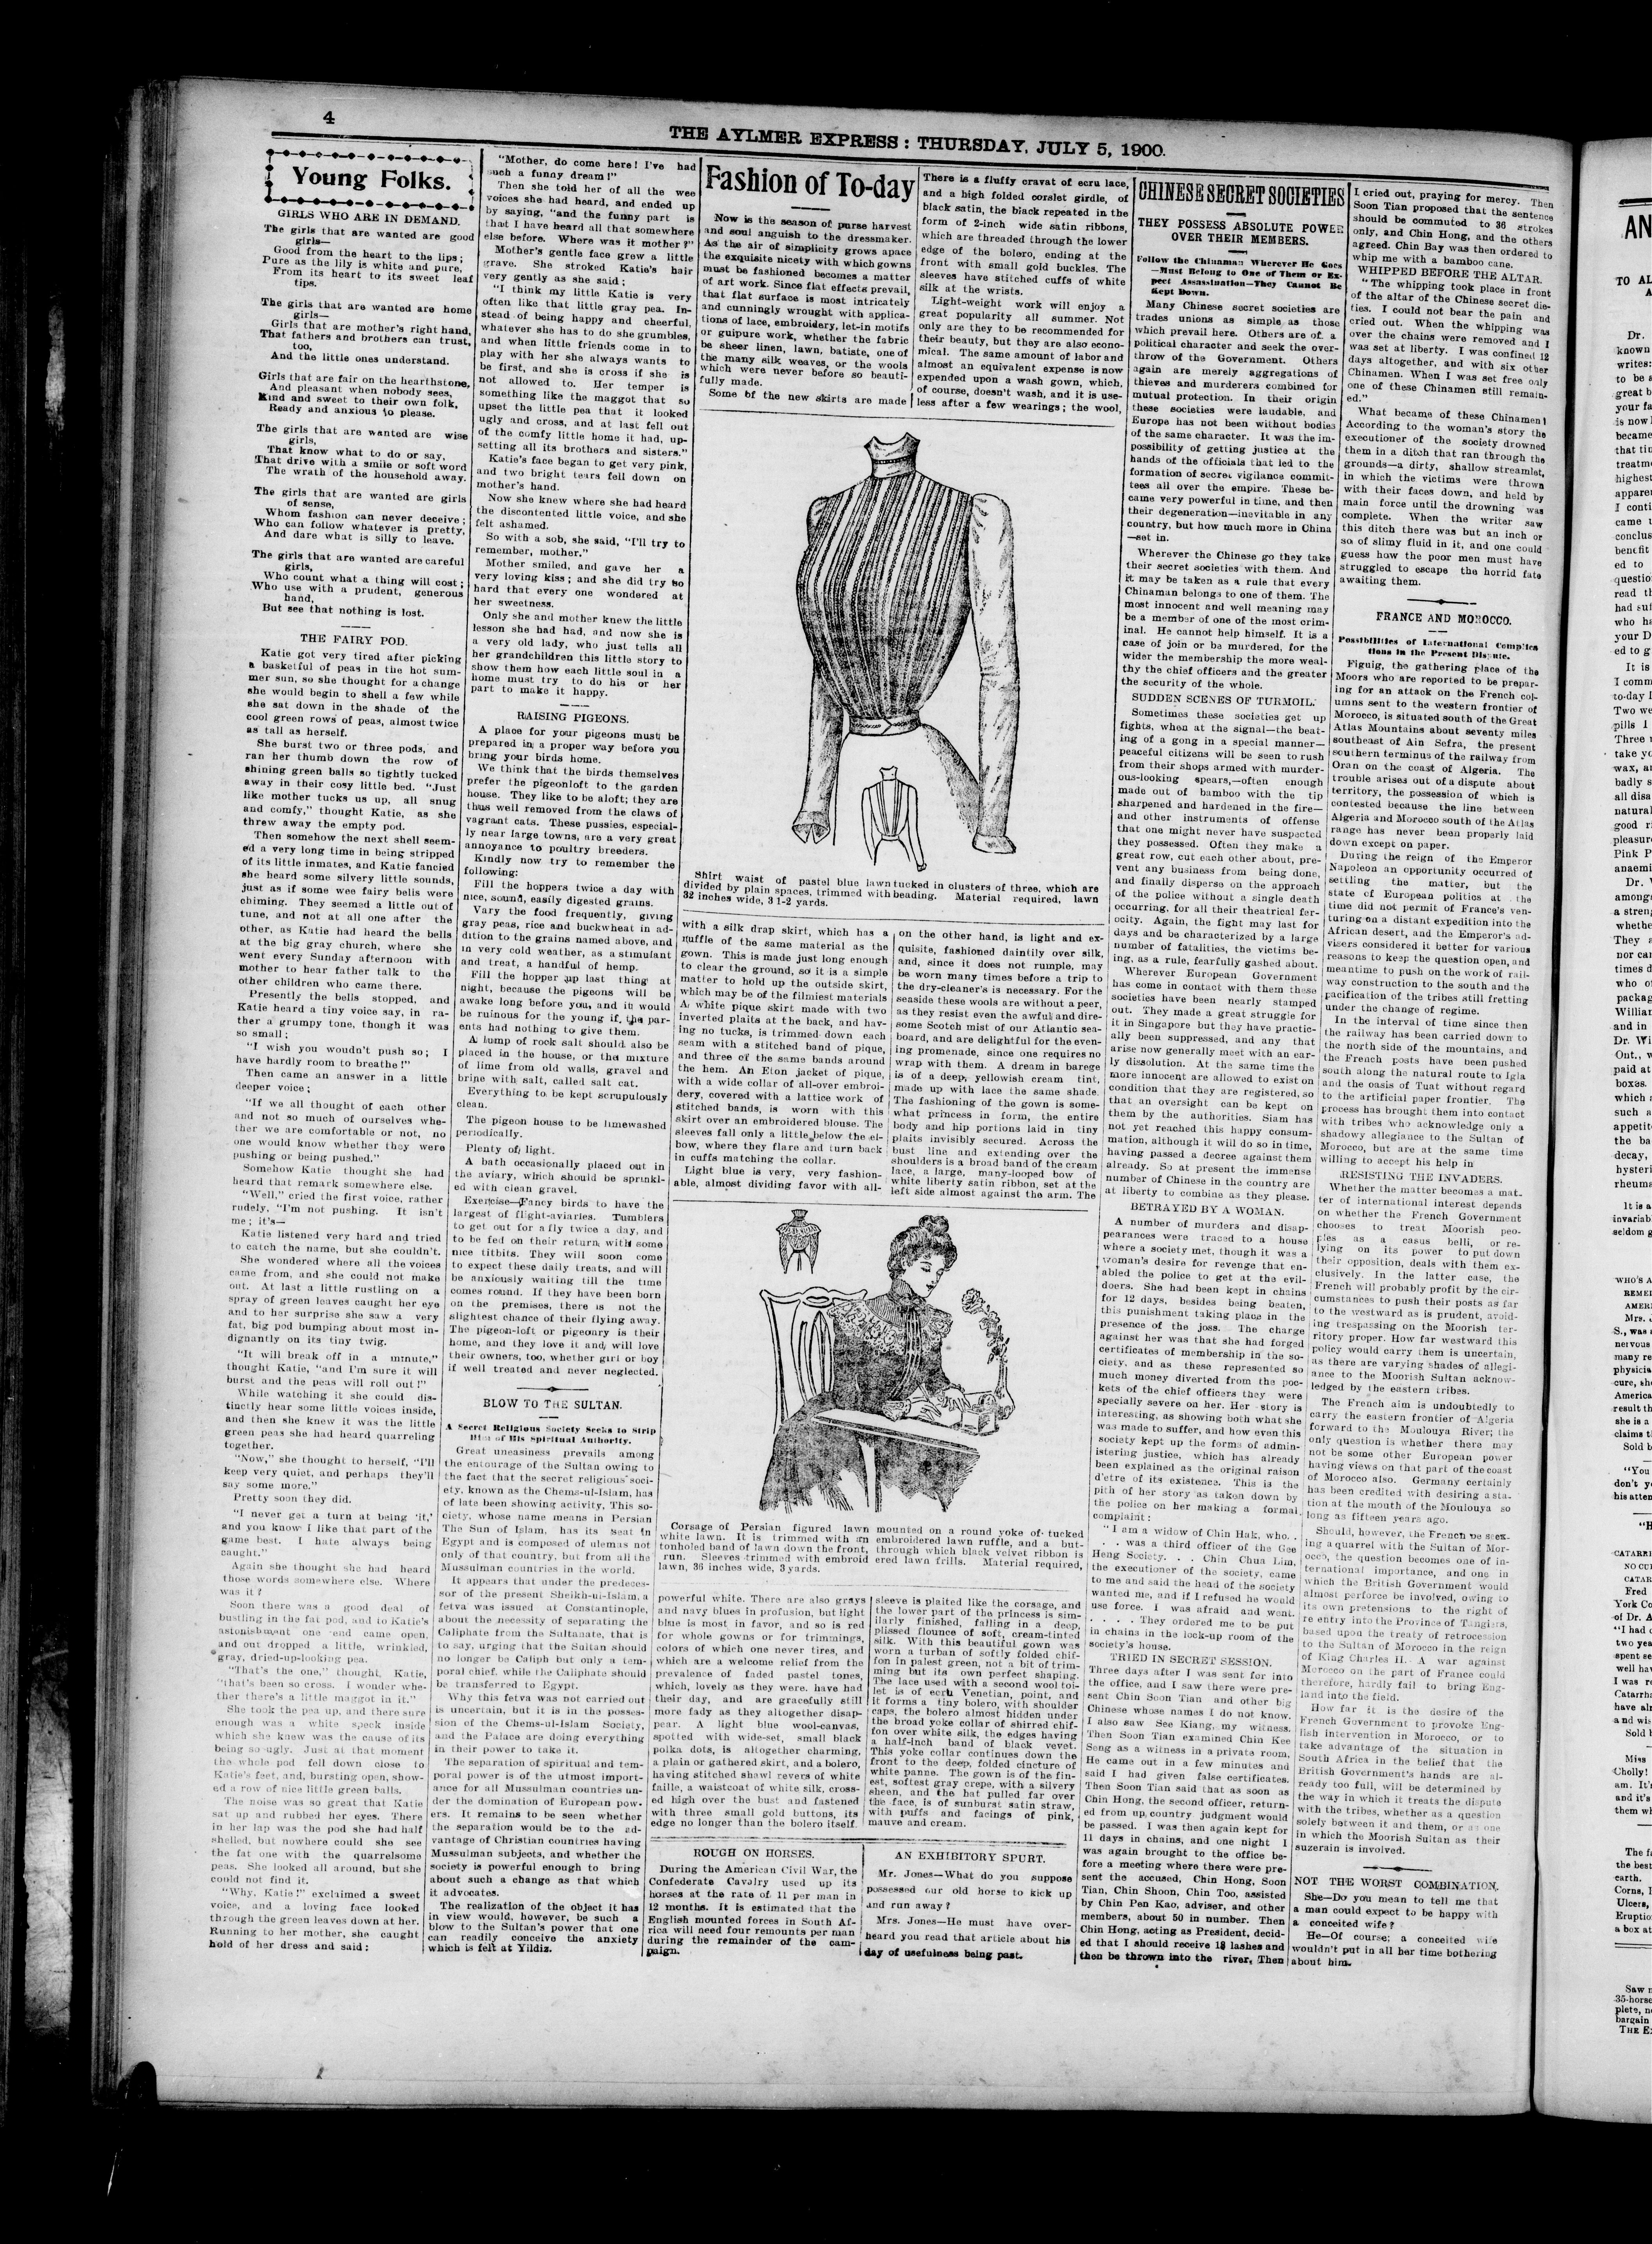 4
THE AYLMER EXPRESS: THURSDAY, JULY 5, 1900.
Young Folks.
GIRLS WHO ARE IN DEMAND.
The girls that are wanted are good
girls—
Good from the heart to the lips;
Pure as the lily is white and pure,
From its heart to its sweet leaf
tips.
The girls that are wanted are home
girls—
Girls that are mother's right hand,
That fathers and brothers can trust,
too,
And the little ones understand.
Girls that are fair on the hearthstone,
And pleasant when nobody sees,
Kind and sweet to their own folk,
Ready and anxious to please.
The girls that are wanted are wise
girls,
That know what to do or say,
That drive with a smile or soft word
The wrath of the household away.
The girls that are wanted are girls
of sense,
Whom fashion can never deceive;
Who can follow whatever is pretty,
And dare what is silly to leave.
The girls that are wanted are careful
girls,
Who count what a thing will cost;
Who use with a prudent, generous
hand,
But see that nothing is lost.
THE FAIRY POD.
Katie got very tired after picking
a basketful of peas in the hot sum-
mer sun, so she thought for a change
she would begin to shell a few while
she sat down in the shade of the
cool green rows of peas, almost twice
as tall as herself.
She burst two or three pods, and
ran her thumb down the row of
shining green balls so tightly tucked
away in their cosy little bed. "Just
like mother tucks us up, all snug
and comfy," thought Katie, as she
threw away the empty pod.
Then somehow the next shell seem-
ed a very long time in being stripped
of its little inmates, and Katie fancied
she heard some silvery little sounds,
just as if some wee fairy bells were
chiming. They seemed a little out of
tune, and not at all one after the
other, as Katie had heard the bells
at the big gray church, where she
went every Sunday afternoon with
mother to hear father talk to the
other children who came there.
Presently the bells stopped, and
Katie heard a tiny voice say, in ra-
ther a grumpy tone, though it was
so small:
"I wish you woudn't push so; I
have hardly room to breathe!"
Then came an answer in a little
deeper voice;
"If we all thought of each other
and not so much of ourselves whe-
ther we are comfortable or not, no
one would know whether they were
pushing or being pushed."
Somehow Katie thought she had
heard that remark somewhere else.
"Well," cried the first voice, rather
rudely, "I'm not pushing. It isn't
me; it's—
Katie listened very hard and tried
to catch the name, but she couldn't.
She wondered where all the voices
came from, and she could not make
out. At last a little rustling on a
spray of green leaves caught her eye
and to her surprise she saw a very
fat, big pod bumping about most in-
dignantly on its tiny twig.
"It will break off in a minute,"
thought Katie, "and I'm sure it will
burst and the peas will roll out!"
While watching it she could dis-
tinctly hear some little voices inside,
and then she knew it was the little
green peas she had heard quarreling
together.
"Now," she thought to herself, "I'll
keep very quiet, and perhaps they'll
say some more."
Pretty soon they did.
"I never get a turn at being 'it,'
and you know I like that part of the
game best. I hate always being
caught."
Again she thought she had heard
those words somewhere else. Where
was it?
Soon there was a good deal of
bustling in the fat pod, and to Katie's
astonishment one end came open,
and out dropped a little, wrinkled,
gray, dried-up-looking pea.
"That's the one," thought Katie,
"that's been so cross. I wonder whe-
ther there's a little maggot in it."
She took the pea up, and there sure
enough was a white speck inside
which she knew was the cause of its
being so ugly. Just at that moment
the whole pod fell down close to
Katie's feet, and, bursting open, show-
ed a row of nice little green balls.
The noise was so great that Katie
sat up and rubbed her eyes. There
in her lap was the pod she had half
shelled, but nowhere could she see
the fat one with the quarrelsome
peas. She looked all around, but she
could not find it.
"Why, Katie!" exclaimed a sweet
voice, and a loving face looked
through the green leaves down at her.
Running to her mother, she caught
hold of her dress and said:
"Mother, do come here! I've had
such a funny dream!"
Then she told her of all the wee
voices she had heard, and ended up
by saying, "and the funny part is
that I have heard all that somewhere
else before. Where was it mother?"
Mother's gentle face grew a little
grave. She stroked Katie's hair
very gently as she said;
"I think my little Katie is very
often like that little gray pea. In-
stead of being happy and cheerful,
whatever she has to do she grumbles,
and when little friends come in to
play with her she always wants to
be first, and she is cross if she is
not allowed to. Her temper is
something like the maggot that so
upset the little pea that it looked
ugly and cross, and at last fell out
of the comfy little home it had, up-
setting all its brothers and sisters."
Katie's face began to get very pink,
and two bright tears fell down on
mother's hand.
Now she knew where she had heard
the discontented little voice, and she
felt ashamed.
So with a sob, she said, "I'll try to
remember, mother."
Mother smiled, and gave her a
very loving kiss; and she did try so
hard that every one wondered at
her sweetness.
Only she and mother knew the little
lesson she had had, and now she is
a very old lady, who just tells all
her grandchildren this little story to
show them how each little soul in a
home must try to do his or her
part to make it happy.
RAISING PIGEONS.
A place for your pigeons must be
prepared in a proper way before you
bring your birds home.
We think that the birds themselves
prefer the pigeonloft to the garden
house. They like to be aloft; they are
thus well removed from the claws of
vagrant cats. These pussies, especial-
ly near large towns, are a very great
annoyance to poultry breeders.
Kindly now try to remember the
following:
Fill the hoppers twice a day with
nice, sound, easily digested grains.
Vary the food frequently, giving
gray peas, rice and buckwheat in ad-
dition to the grains named above, and
in very cold weather, as a stimulant
and treat, a handful of hemp.
Fill the hopper up last thing at
night, because the pigeons will be
awake long before you, and it would
be ruinous for the young if the par-
ents had nothing to give them.
A lump of rock salt should also be
placed in the house, or the mixture
of lime from old walls, gravel and
brine with salt, called salt cat.
Everything to be kept scrupulously
clean.
The pigeon house to be limewashed
periodically.
Plenty of light.
A bath occasionally placed out in
the aviary, which should be sprinkl-
ed with clean gravel.
Exercise—Fancy birds to have the
largest of flight-aviaries. Tumblers
to get out for a fly twice a day, and
to be fed on their return with some
nice titbits. They will soon come
to expect these daily treats, and will
be anxiously waiting till the time
comes round. If they have been born
on the premises, there is not the
slightest chance of their flying away.
The pigeon-loft or pigeonry is their
home, and they love it and will love
their owners, too, whether girl or boy
if well treated and never neglected.
BLOW TO THE SULTAN.
A Secret Religious Society Seeks to Strip
Him of His Spiritual Authority.
Great uneasiness prevails among
the entourage of the Sultan owing to
the fact that the secret religious soci-
ety, known as the Chems-ul-Islam, has
of late been showing activity. This so-
ciety, whose name means in Persian
The Sun of Islam, has its seat in
Egypt and is composed of ulemas not
only of that country, but from all the
Mussulman countries in the world.
It appears that under the predeces-
sor of the present Sheikh-ul-Islam, a
fetva was issued at Constantinople,
about the necessity of separating the
Caliphate from the Sultanate, that is
to say, urging that the Sultan should
no longer be Caliph but only a tem-
poral chief, while the Caliphate should
be transferred to Egypt.
Why this fetva was not carried out
is uncertain, but it is in the posses-
sion of the Chems-ul-Islam Society,
and the Palace are doing everything
in their power to take it.
The separation of spiritual and tem-
poral power is of the utmost import-
ance for all Mussulman countries un-
der the domination of European pow-
ers. It remains to be seen whether
the separation would be to the ad-
vantage of Christian countries having
Mussulman subjects, and whether the
society is powerful enough to bring
about such a change as that which
it advocates.
The realization of the object it has
in view would, however, be such a
blow to the Sultan's power that one
can readily conceive the anxiety
which is felt at Yildiz.
Fashion of To-day
Now is the season of purse harvest
and soul anguish to the dressmaker.
As the air of simplicity grows apace
the exquisite nicety with which gowns
must be fashioned becomes a matter
of art work. Since flat effects prevail,
that flat surface is most intricately
and cunningly wrought with applica-
tions of lace, embroidery, let-in motifs
or guipure work, whether the fabric
be sheer linen, lawn, batiste, one of
the many silk weaves, or the wools
which were never before so beauti-
fully made.
Some of the new skirts are made
There is a fluffy cravat of ecru lace,
and a high folded corslet girdle, of
black satin, the black repeated in the
form of 2-inch wide satin ribbons,
which are threaded through the lower
edge of the bolero, ending at the
front with small gold buckles. The
sleeves have stitched cuffs of white
silk at the wrists.
Light-weight work will enjoy a
great popularity all summer. Not
only are they to be recommended for
their beauty, but they are also econo-
mical. The same amount of labor and
almost an equivalent expense is now
expended upon a wash gown, which,
of course, doesn't wash, and it is use-
less after a few wearings; the wool,
Shirt waist of pastel blue lawn tucked in clusters of three, which are
divided by plain spaces, trimmed with beading. Material required, lawn
32 inches wide, 3 1-2 yards.
with a silk drap skirt, which has a
ruffle of the same material as the
gown. This is made just long enough
to clear the ground, so it is a simple
matter to hold up the outside skirt,
which may be of the filmiest materials
A white pique skirt made with two
inverted plaits at the back, and hav-
ing no tucks, is trimmed down each
seam with a stitched band of pique,
and three of the same bands around
the hem. An Eton jacket of pique,
with a wide collar of all-over embroi-
dery, covered with a lattice work of
stitched bands, is worn with this
skirt over an embroidered blouse. The
sleeves fall only a little below the el-
bow, where they flare and turn back
in cuffs matching the collar.
Light blue is very, very fashion-
able, almost dividing favor with all-
on the other hand, is light and ex-
quisite, fashioned daintily over silk,
and, since it does not rumple, may
be worn many times before a trip to
the dry-cleaner's is necessary. For the
seaside these wools are without a peer,
as they resist even the awful and dire-
some Scotch mist of our Atlantic sea-
board, and are delightful for the even-
ing promenade, since one requires no
wrap with them. A dream in barege
is of a deep, yellowish cream tint,
made up with lace the same shade.
The fashioning of the gown is some-
what princess in form, the entire
body and hip portions laid in tiny
plaits invisibly secured. Across the
bust line and extending over the
shoulders is a broad band of the cream
lace, a large, many-looped bow of
white liberty satin ribbon, set at the
left side almost against the arm. The
Corsage of Persian figured lawn mounted on a round yoke of tucked
white lawn. It is trimmed with an embroidered lawn ruffle, and a but-
tonholed band of lawn down the front, through which black velvet ribbon is
run. Sleeves trimmed with embroid ered lawn frills. Material required,
lawn, 36 inches wide, 3 yards.
powerful white. There are also grays
and navy blues in profusion, but light
blue is most in favor, and so is red
for whole gowns or for trimmings,
colors of which one never tires, and
which are a welcome relief from the
prevalence of faded pastel tones,
which, lovely as they were, have had
their day, and are gracefully still
more fady as they altogether disap-
pear. A light blue wool-canvas,
spotted with wide-set, small black
polka dots, is altogether charming,
a plain or gathered skirt, and a bolero,
having stitched shawl revers of white
faille, a waistcoat of white silk, cross-
ed high over the bust and fastened
with three small gold buttons, its
edge no longer than the bolero itself.
sleeve is plaited like the corsage, and
the lower part of the princess is sim-
ilarly finished, falling in a deep,
plissed flounce of soft, cream-tinted
silk. With this beautiful gown was
worn a turban of softly folded chif-
fon in palest green, not a bit of trim-
ming but its own perfect shaping.
The lace used with a second wool toi-
let is of ecru Venetian, point, and
it forms a tiny bolero, with shoulder
caps, the bolero almost hidden under
the broad yoke collar of shirred chif-
fon over white silk, the edges having
a half-inch band of black vevet.
This yoke collar continues down the
front to the deep, folded cincture of
white panne. The gown is of the fin-
est, softest gray crepe, with a silvery
sheen, and the hat pulled far over
the face, is of sunburst satin straw,
with puffs and facings of pink,
mauve and cream.
ROUGH ON HORSES.
During the American Civil War, the
Confederate Cavalry used up its
horses at the rate of 11 per man in
12 months. It is estimated that the
English mounted forces in South Af-
rica will need four remounts per man
during the remainder of the cam-
paign.
AN EXHIBITORY SPURT.
Mr. Jones—What do you suppose
possessed our old horse to kick up
and run away?
Mrs. Jones—He must have over-
heard you read that article about his
day of usefulness being past.
CHINESE SECRET SOCIETIES
THEY POSSESS ABSOLUTE POWER
OVER THEIR MEMBERS.
Follow the Chinaman Wherever He Goes
—Must Belong to One of Them or Ex-
pect Assassination—They Cannot Be
Kept Down.
Many Chinese secret societies are
trades unions as simple as those
which prevail here. Others are of a
political character and seek the over-
throw of the Government. Others
again are merely aggregations of
thieves and murderers combined for
mutual protection. In their origin
these societies were laudable, and
Europe has not been without bodies
of the same character. It was the im-
possibility of getting justice at the
hands of the officials that led to the
formation of secret vigilance commit-
tees all over the empire. These be-
came very powerful in time, and then
their degeneration—inevitable in any
country, but how much more in China
—set in.
Wherever the Chinese go they take
their secret societies with them. And
it may be taken as a rule that every
Chinaman belongs to one of them. The
most innocent and well meaning may
be a member of one of the most crim-
inal. He cannot help himself. It is a
case of join or be murdered, for the
wider the membership the more weal-
thy the chief officers and the greater
the security of the whole.
SUDDEN SCENES OF TURMOIL.
Sometimes these societies get up
fights, when at the signal—the beat-
ing of a gong in a special manner—
peaceful citizens will be seen to rush
from their shops armed with murder-
ous-looking spears,—often enough
made out of bamboo with the tip
sharpened and hardened in the fire—
and other instruments of offense
that one might never have suspected
they possessed. Often they make a
great row, cut each other about, pre-
vent any business from being done,
and finally disperse on the approach
of the police without a single death
occurring, for all their theatrical fer-
ocity. Again, the fight may last for
days and be characterized by a large
number of fatalities, the victims be-
ing, as a rule, fearfully gashed about.
Wherever European Government
has come in contact with them these
societies have been nearly stamped
out. They made a great struggle for
it in Singapore but they have practic-
ally been suppressed, and any that
arise now generally meet with an ear-
ly dissolution. At the same time the
more innocent are allowed to exist on
condition that they are registered, so
that an oversight can be kept on
them by the authorities. Siam has
not yet reached this happy consum-
mation, although it will do so in time,
having passed a decree against them
already. So at present the immense
number of Chinese in the country are
at liberty to combine as they please.
BETRAYED BY A WOMAN.
A number of murders and disap-
pearances were traced to a house
where a society met, though it was a
woman's desire for revenge that en-
abled the police to get at the evil-
doers. She had been kept in chains
for 12 days, besides being beaten,
this punishment taking place in the
presence of the joss. The charge
against her was that she had forged
certificates of membership in the so-
ciety, and as these represented so
much money diverted from the poc-
kets of the chief officers they were
specially severe on her. Her story is
interesting, as showing both what she
was made to suffer, and how even this
society kept up the forms of admin-
istering justice, which has already
been explained as the original raison
d'etre of its existence. This is the
pith of her story as taken down by
the police on her making a formal
complaint:
"I am a widow of Chin Hak, who. .
. . was a third officer of the Gee
Heng Society. . . Chin Chua Lim,
the executioner of the society, came
to me and said the head of the society
wanted me, and if I refused he would
use force. I was afraid and went.
. . . . . They ordered me to be put
in chains in the lock-up room of the
society's house.
TRIED IN SECRET SESSION.
Three days after I was sent for into
the office, and I saw there were pre-
sent Chin Soon Tian and other big
Chinese whose names I do not know.
I also saw See Kiang, my witness.
Then Soon Tian examined Chin Kee
Seng as a witness in a private room.
He came out in a few minutes and
said I had given false certificates.
Then Soon Tian said that as soon as
Chin Hong, the second officer, return-
ed from up country judgment would
be passed. I was then again kept for
11 days in chains, and one night I
was again brought to the office be-
fore a meeting where there were pre-
sent the accused, Chin Hong, Soon
Tian, Chin Shoon, Chin Too, assisted
by Chin Pen Kao, adviser, and other
members, about 50 in number. Then
Chin Hong, acting as President, decid-
ed that I should receive 18 lashes and
then be thrown into the river. Then
I cried out, praying for mercy. Then
Soon Tian proposed that the sentence
should be commuted to 36 strokes
only, and Chin Hong, and the others
agreed. Chin Bay was then ordered to
whip me with a bamboo cane.
WHIPPED BEFORE THE ALTAR.
"The whipping took place in front
of the altar of the Chinese secret die-
ties. I could not bear the pain and
cried out. When the whipping was
over the chains were removed and I
was set at liberty. I was confined 12
days altogether, and with six other
Chinamen. When I was set free only
one of these Chinamen still remain-
ed."
What became of these Chinamen!
According to the woman's story the
executioner of the society drowned
them in a ditch that ran through the
grounds—a dirty, shallow streamlet,
in which the victims were thrown
with their faces down, and held by
main force until the drowning was
complete. When the writer saw
this ditch there was but an inch or
so of slimy fluid in it, and one could
guess how the poor men must have
struggled to escape the horrid fate
awaiting them.
FRANCE AND MOROCCO.
Possibilities of International Complica
tions in the Present Dispute.
Figuig, the gathering place of the
Moors who are reported to be prepar-
ing for an attack on the French col-
umns sent to the western frontier of
Morocco, is situated south of the Great
Atlas Mountains about seventy miles
southeast of Ain Sefra, the present
southern terminus of the railway from
Oran on the coast of Algeria. The
trouble arises out of a dispute about
territory, the possession of which is
contested because the line between
Algeria and Morocco south of the Atlas
range has never been properly laid
down except on paper.
During the reign of the Emperor
Napoleon an opportunity occurred of
settling the matter, but the
state of European politics at the
time did not permit of France's ven-
turing on a distant expedition into the
African desert, and the Emperor's ad-
visers considered it better for various
reasons to keep the question open, and
meantime to push on the work of rail-
way construction to the south and the
pacification of the tribes still fretting
under the change of regime.
In the interval of time since then
the railway has been carried down to
the north side of the mountains, and
the French posts have been pushed
south along the natural route to Igla
and the oasis of Tuat without regard
to the artificial paper frontier. The
process has brought them into contact
with tribes who acknowledge only a
shadowy allegiance to the Sultan of
Morocco, but are at the same time
willing to accept his help in
RESISTING THE INVADERS.
Whether the matter becomes a mat-
ter of international interest depends
on whether the French Government
chooses to treat Moorish peo-
ples as a casus belli, or re-
lying on its power to put down
their opposition, deals with them ex-
clusively. In the latter case, the
French will probably profit by the cir-
cumstances to push their posts as far
to the westward as is prudent, avoid-
ing trespassing on the Moorish ter-
ritory proper. How far westward this
policy would carry them is uncertain,
as there are varying shades of allegi-
ance to the Moorish Sultan acknow-
ledged by the eastern tribes.
The French aim is undoubtedly to
carry the eastern frontier of Algeria
forward to the Moulouya River; the
only question is whether there may
not be some other European power
having views on that part of the coast
of Morocco also. Germany certainly
has been credited with desiring a sta-
tion at the mouth of the Moulouya so
long as fifteen years ago.
Should, however, the French be seek-
ing a quarrel with the Sultan of Mor-
occo, the question becomes one of in-
ternational importance, and one in
which the British Government would
almost perforce be involved, owing to
its own pretensions to the right of
re entry into the Province of Tangiers,
based upon the treaty of retrocession
to the Sultan of Morocco in the reign
of King Charles II. A war against
Morocco on the part of France could
therefore, hardly fail to bring Eng-
land into the field.
How far it is the desire of the
French Government to provoke Eng-
lish intervention in Morocco, or to
take advantage of the situation in
South Africa in the belief that the
British Government's hands are al-
ready too full, will be determined by
the way in which it treats the dispute
with the tribes, whether as a question
solely between it and them, or as one
in which the Moorish Sultan as their
suzerain is involved.
NOT THE WORST COMBINATION.
She—Do you mean to tell me that
a man could expect to be happy with
a conceited wife?
He—Of course; a conceited wife
wouldn't put in all her time bothering
about him.